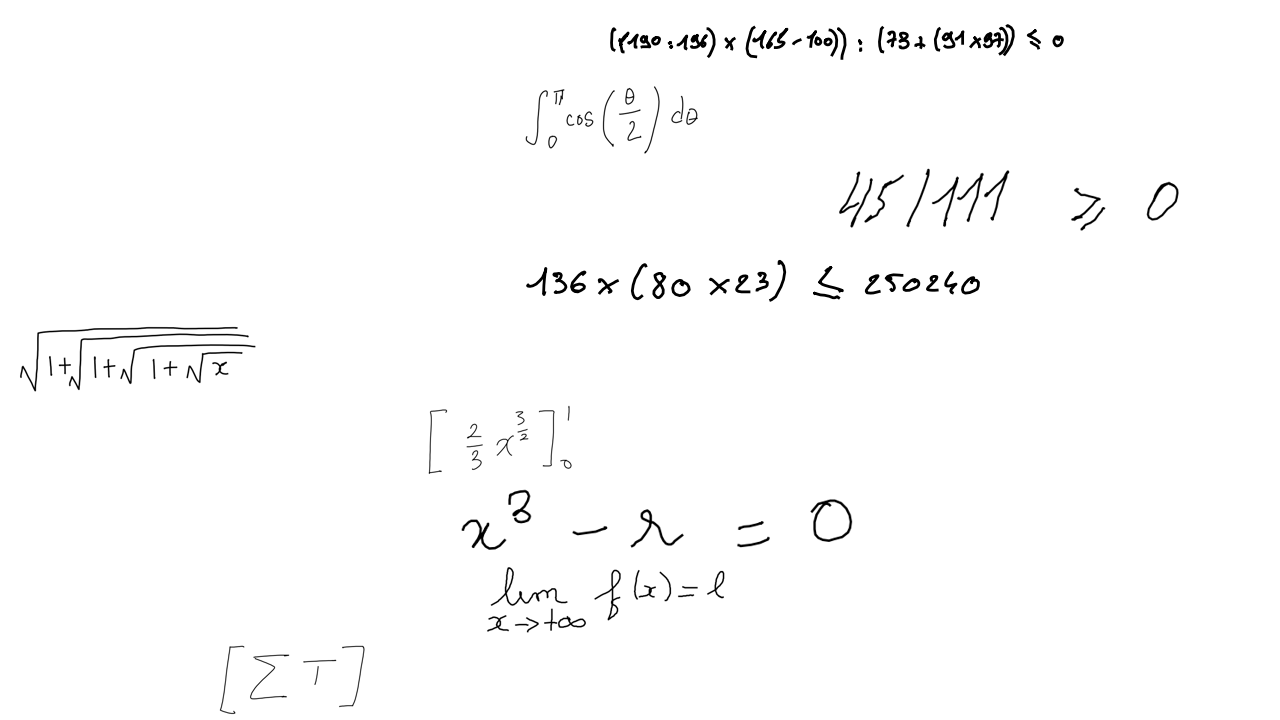 ((190:196)×(165-100)):(73+(91×97))≤0
∫_0^π cos(θ/2) dθ
45/111 ≥ 0
136×(80×23) ≤ 250240
√(1+√(1+√(1+√x)))
[2/3 x^(3/2)]_0^1
x^3 - r = 0
lim_(x→+∞) f(x) = l
[Σ T]